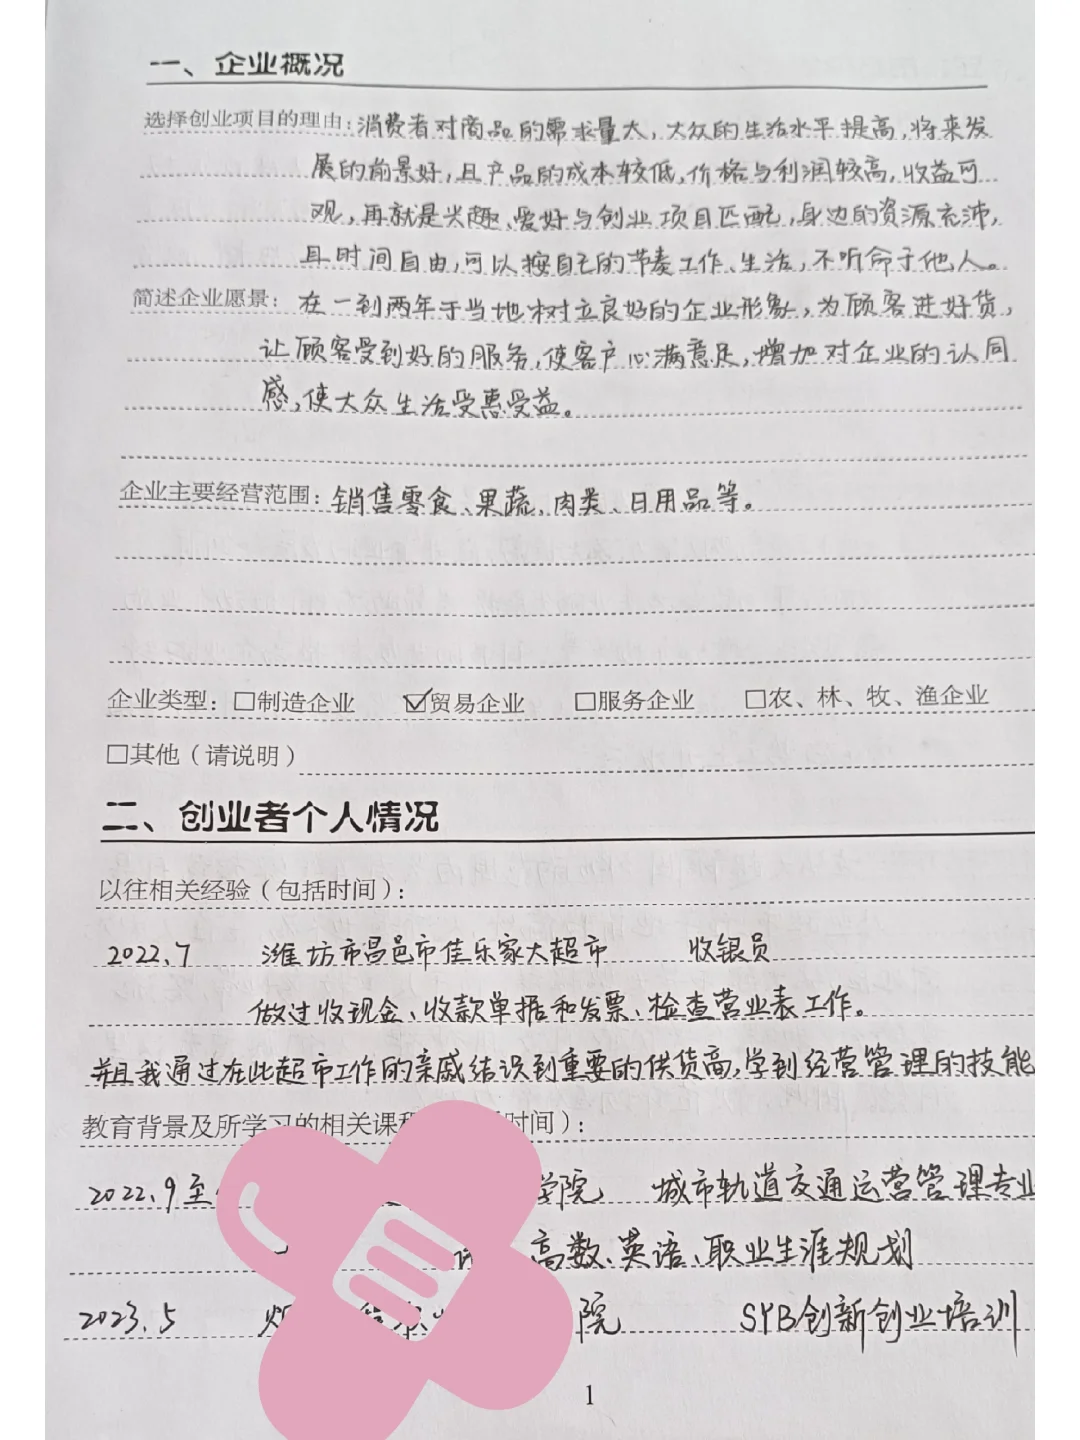 一、企业概况
选择创业项目的理由:消费者对商品的需求量大,大众的生活水平提高,将来发
展的前景好,且产品的成本较低,价格与利润较高,收益可
观,再就是兴趣、爱好与创业项目匹配,身边的资源充沛,
且时间自由,可以按自己的节奏工作、生活,不听命于他人。
简述企业愿景:在一到两年于当地树立良好的企业形象,为顾客进好货,
让顾客受到好的服务,使客户心满意足,增加对企业的认同
感,使大众生活受惠受益。
企业主要经营范围:销售零食、果蔬、肉类、日用品等。
企业类型:□制造企业 ☑贸易企业 □服务企业 □农、林、牧、渔企业
□其他(请说明)
二、创业者个人情况
以往相关经验(包括时间):
2022.7 潍坊市昌邑市佳乐家大超市 收银员
做过收现金、收款单据和发票、检查营业表工作。
并且我通过在此超市工作的亲戚结识到重要的供货商,学到经营管理的技能
教育背景及所学习的相关课程 时间):
2022.9至 学院 城市轨道交通运营管理专业
高数、英语、职业生涯规划
2023.5 院 SYB创新创业培训
1